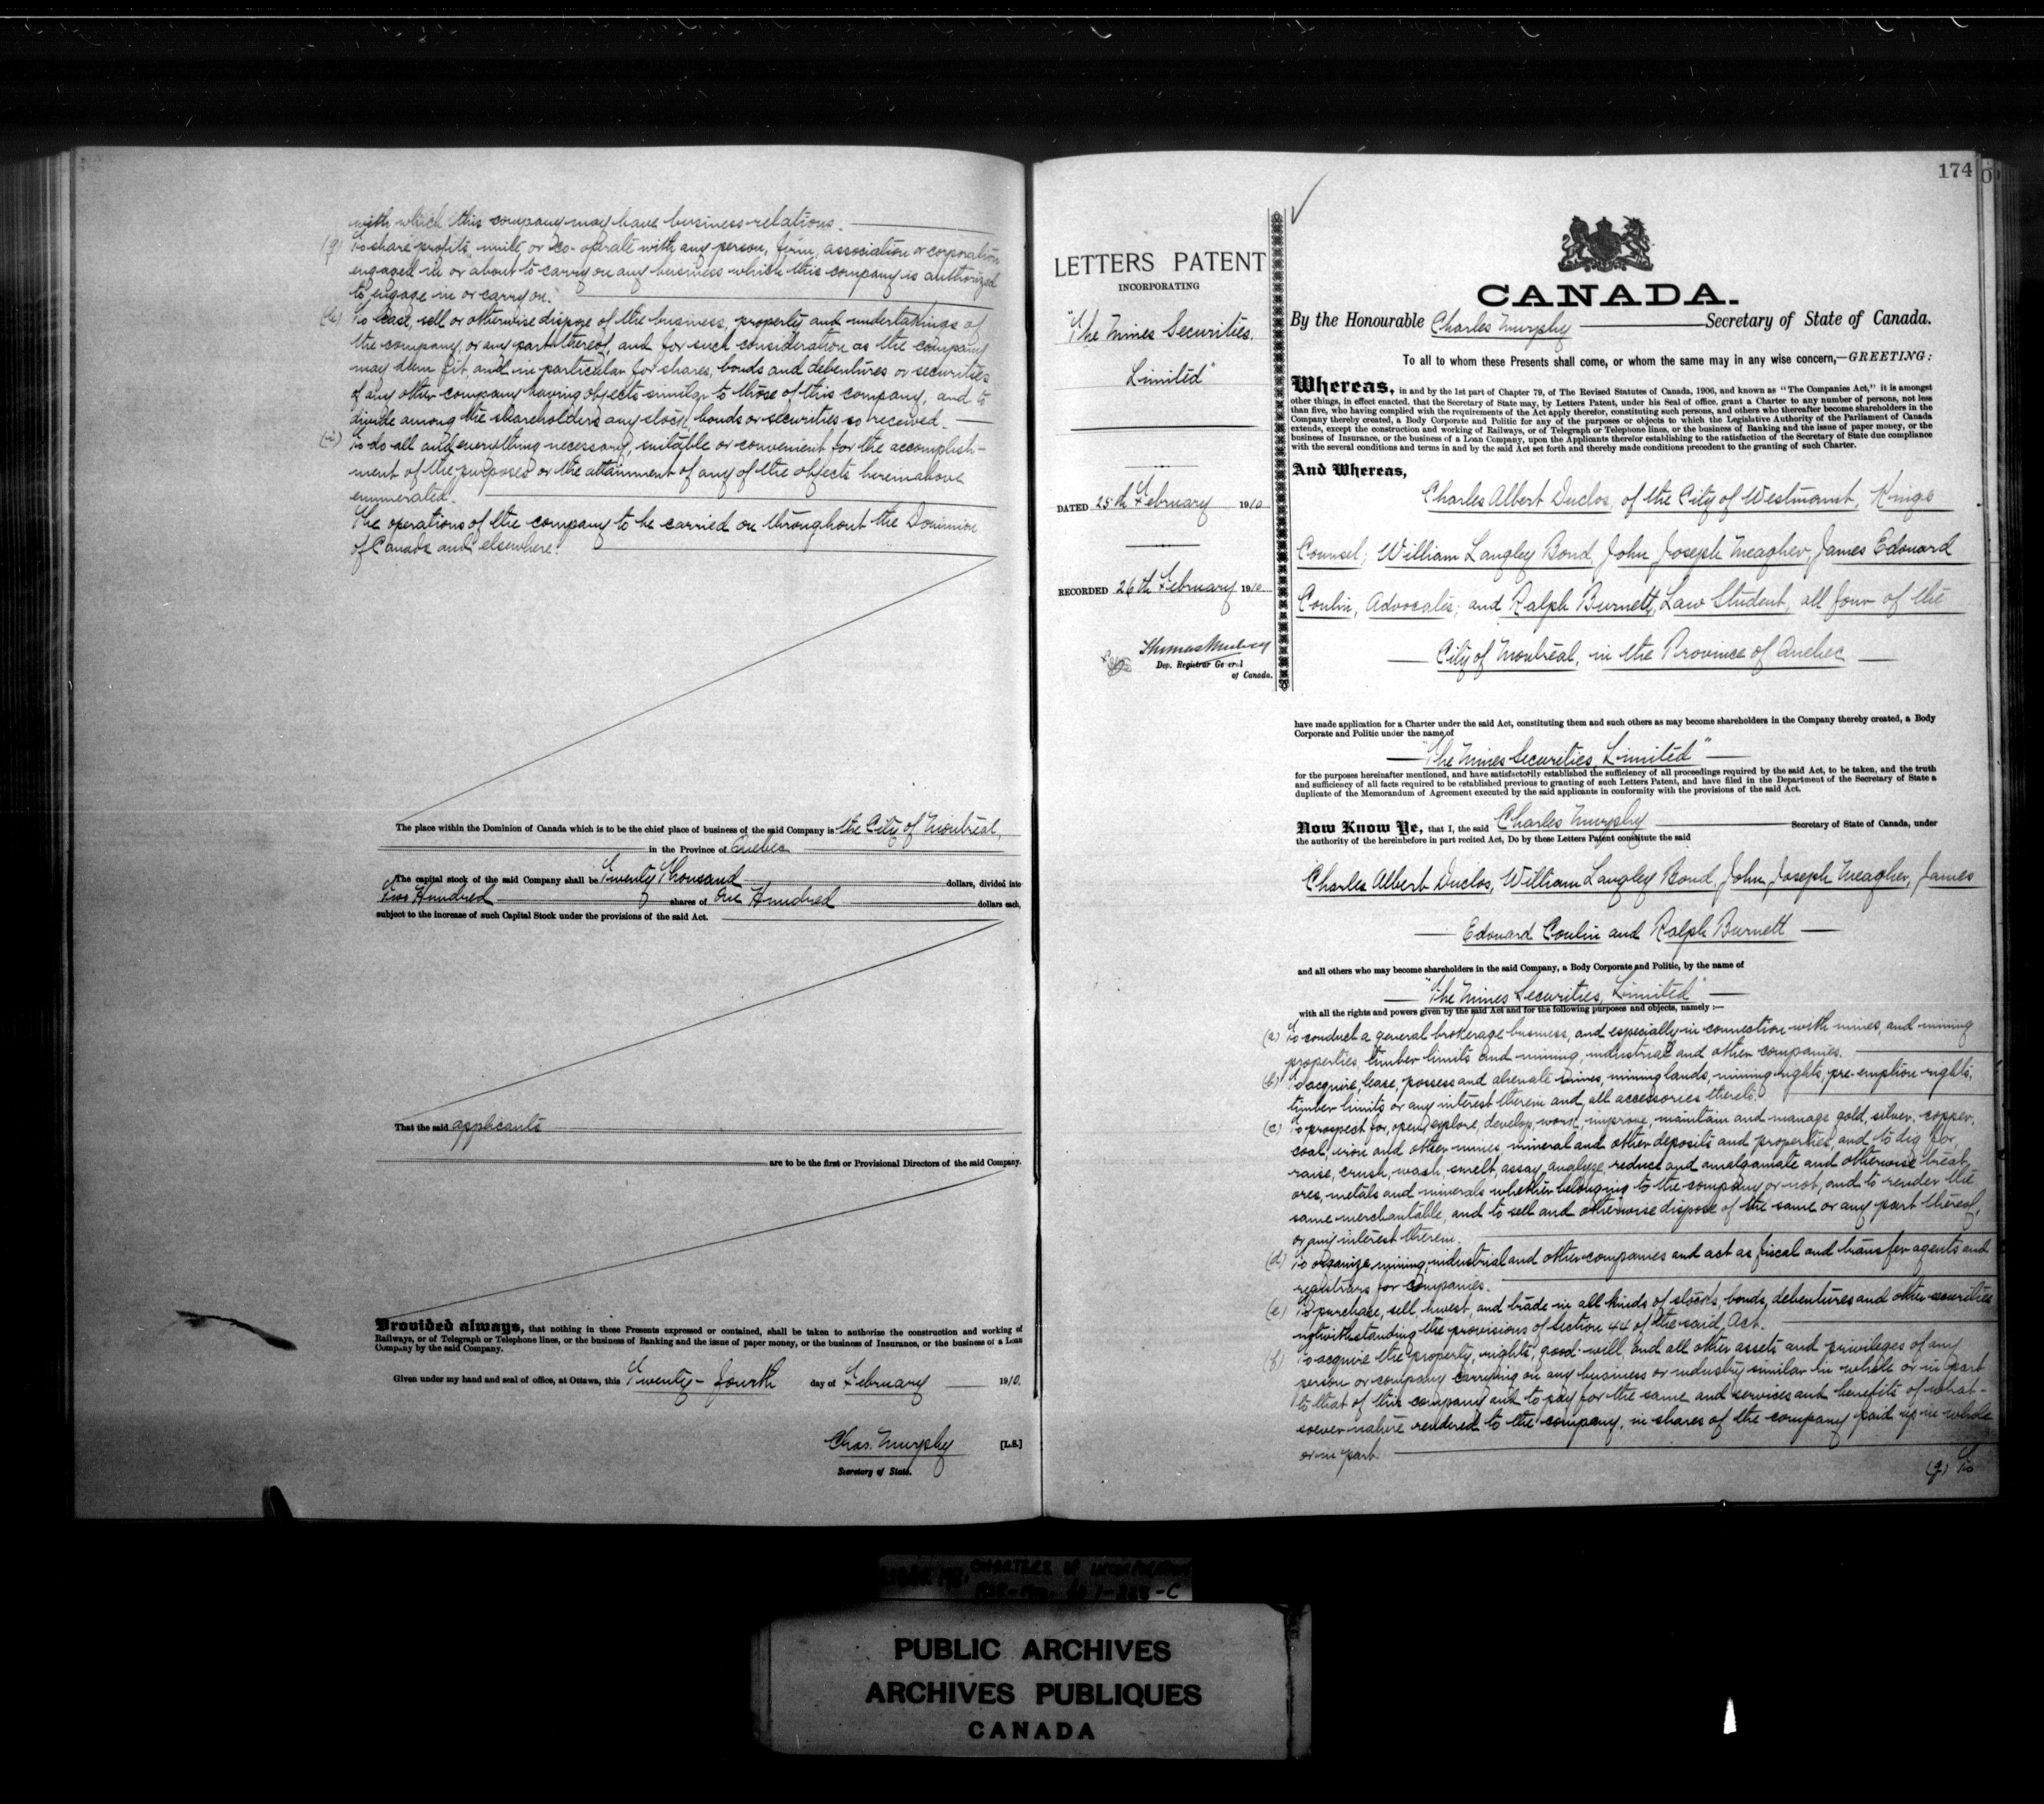 with which this company may have business relations.
(g) To share profits, unite, or co-operate with any person, firm, association or corporation
engaged in or about to carry on any business which this company is authorized
to engage in or carry on.
(h) To lease, sell or otherwise dispose of the business, property and undertakings of
the company, or any part thereof, and for such consideration as the company
may deem fit, and in particular for shares, bonds and debentures or securities
of any other company having objects similar to those of this company, and to
divide among the shareholders any stock, bonds or securities so received.
(i) To do all and everything necessary, suitable or convenient for the accomplish-
ment of the purposes or the attainment of any of the objects hereinabove
enumerated.
The operations of the company to be carried on throughout the Dominion
of Canada and elsewhere.
The place within the Dominion of Canada which is to be the chief place of business of the said Company is the City of Montreal,
in the Province of Quebec
The capital stock of the said Company shall be Twenty Thousand dollars, divided into
Two Hundred shares of One Hundred dollars each,
subject to the increase of such Capital Stock under the provisions of the said Act.
That the said applicants
are to be the first or Provisional Directors of the said Company.
Provided always, that nothing in these Presents expressed or contained, shall be taken to authorize the construction and working of
Railways, or of Telegraph or Telephone lines, or the business of Banking and the issue of paper money, or the business of Insurance, or the business of a Loan
Company by the said Company.
Given under my hand and seal of office, at Ottawa, this Twenty-fourth day of February 1910.
Chas. Murphy [L.S.]
Secretary of State.
174
LETTERS PATENT
INCORPORATING
"The Mines Securities,
Limited"
DATED 25th February 1910
RECORDED 26th February 1910
Thomas Mulvey
Dep. Registrar General
of Canada.
CANADA.
By the Honourable Charles Murphy Secretary of State of Canada.
To all to whom these Presents shall come, or whom the same may in any wise concern,—GREETING:
Whereas, in and by the 1st part of Chapter 79, of The Revised Statutes of Canada, 1906, and known as "The Companies Act," it is amongst
other things, in effect enacted, that the Secretary of State may, by Letters Patent, under his Seal of office, grant a Charter to any number of persons, not less
than five, who having complied with the requirements of the Act apply therefor, constituting such persons, and others who thereafter become shareholders in the
Company thereby created, a Body Corporate and Politic for any of the purposes or objects to which the Legislative Authority of the Parliament of Canada
extends, except the construction and working of Railways, or of Telegraph or Telephone lines, or the business of Banking and the issue of paper money, or the
business of Insurance, or the business of a Loan Company, upon the Applicants therefor establishing to the satisfaction of the Secretary of State due compliance
with the several conditions and terms in and by the said Act set forth and thereby made conditions precedent to the granting of such Charter.
And Whereas,
Charles Albert Duclos, of the City of Westmount, King's
Counsel; William Langley Bond, John Joseph Meagher, James Edouard
Coulin, Advocates; and Ralph Burnett, Law Student, all four of the
City of Montreal, in the Province of Quebec
have made application for a Charter under the said Act, constituting them and such others as may become shareholders in the Company thereby created, a Body
Corporate and Politic under the name of
"The Mines Securities, Limited"
for the purposes hereinafter mentioned, and have satisfactorily established the sufficiency of all proceedings required by the said Act, to be taken, and the truth
and sufficiency of all facts required to be established previous to granting of such Letters Patent, and have filed in the Department of the Secretary of State a
duplicate of the Memorandum of Agreement executed by the said applicants in conformity with the provisions of the said Act.
Now Know Ye, that I, the said Charles Murphy Secretary of State of Canada, under
the authority of the hereinbefore in part recited Act, Do by these Letters Patent constitute the said
Charles Albert Duclos, William Langley Bond, John Joseph Meagher, James
Edouard Coulin and Ralph Burnett
and all others who may become shareholders in the said Company, a Body Corporate and Politic, by the name of
"The Mines Securities, Limited"
with all the rights and powers given by the said Act and for the following purposes and objects, namely:—
(a) To conduct a general brokerage business, and especially in connection with mines, and mining
properties, timber limits and mining, industrial and other companies.
(b) To acquire, lease, possess and alienate mines, mining lands, mining rights, pre-emption rights,
timber limits or any interest therein and all accessories thereto.
(c) To prospect for, open, explore, develop, work, improve, maintain and manage gold, silver, copper,
coal, iron and other mines, mineral and other deposits and properties, and to dig for,
raise, crush, wash, smelt, assay, analyze, reduce and amalgamate and otherwise treat
ores, metals and minerals whether belonging to the company or not, and to render the
same merchantable, and to sell and otherwise dispose of the same or any part thereof,
or any interest therein.
(d) To organize mining, industrial and other companies and act as fiscal and transfer agents and
registrars for companies.
(e) To purchase, sell, invest and trade in all kinds of stocks, bonds, debentures and other securities
notwithstanding the provisions of section 44 of the said Act.
(f) To acquire the property, rights, good-will and all other assets and privileges of any
person or company carrying on any business or industry similar in whole or in part
to that of this company and to pay for the same and services and benefits of what-
soever nature rendered to the company, in shares of the company paid up in whole
or in part.
(g) To
CHARTERS OF INCORPORATION
PUBLIC ARCHIVES
ARCHIVES PUBLIQUES
CANADA